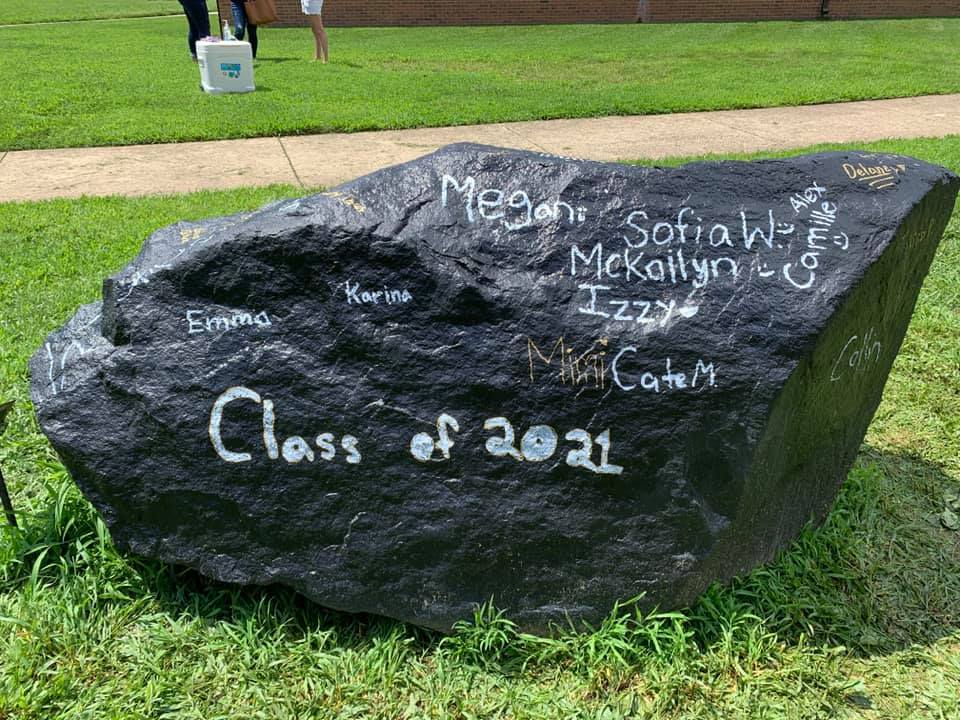 Delaney
Megan
Alex
Sofia W.
Camille
McKailyn
Izzy
Karina
Emma
Mini
Cate M.
Colin
Class of 2021